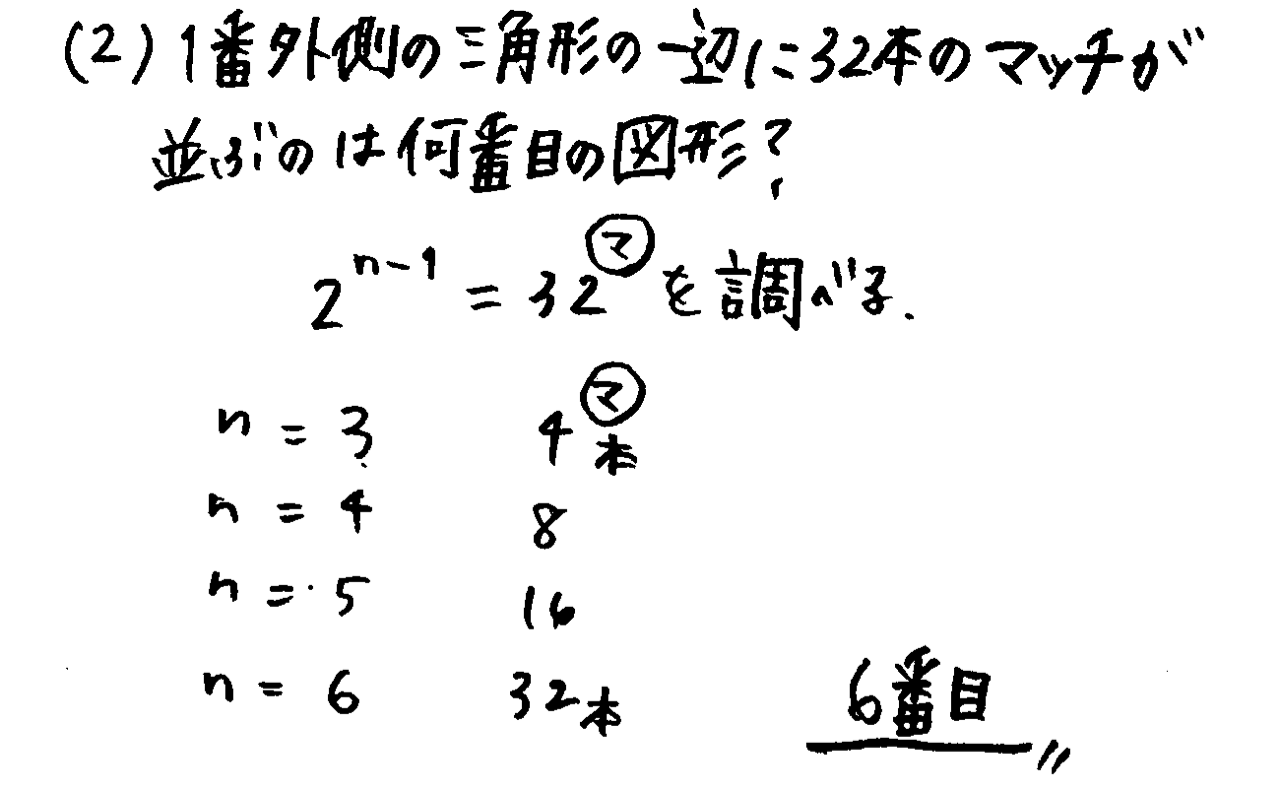 (2) 1番外側の三角形の一辺に32本のマッチが
並ぶのは何番目の図形?
2^{n-1} = 32㋮を調べる.
n = 3 4㋮本
n = 4 8
n = 5 16
n = 6 32本
6番目